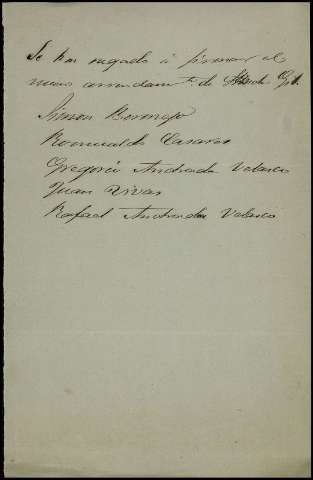 Se han negado á firmar el
nuevo arrendamto. de
Simon Bermejo
Romualdo Casares
Gregorio Andrada Velasco
Juan Vivas
Rafael Andrada Velasco